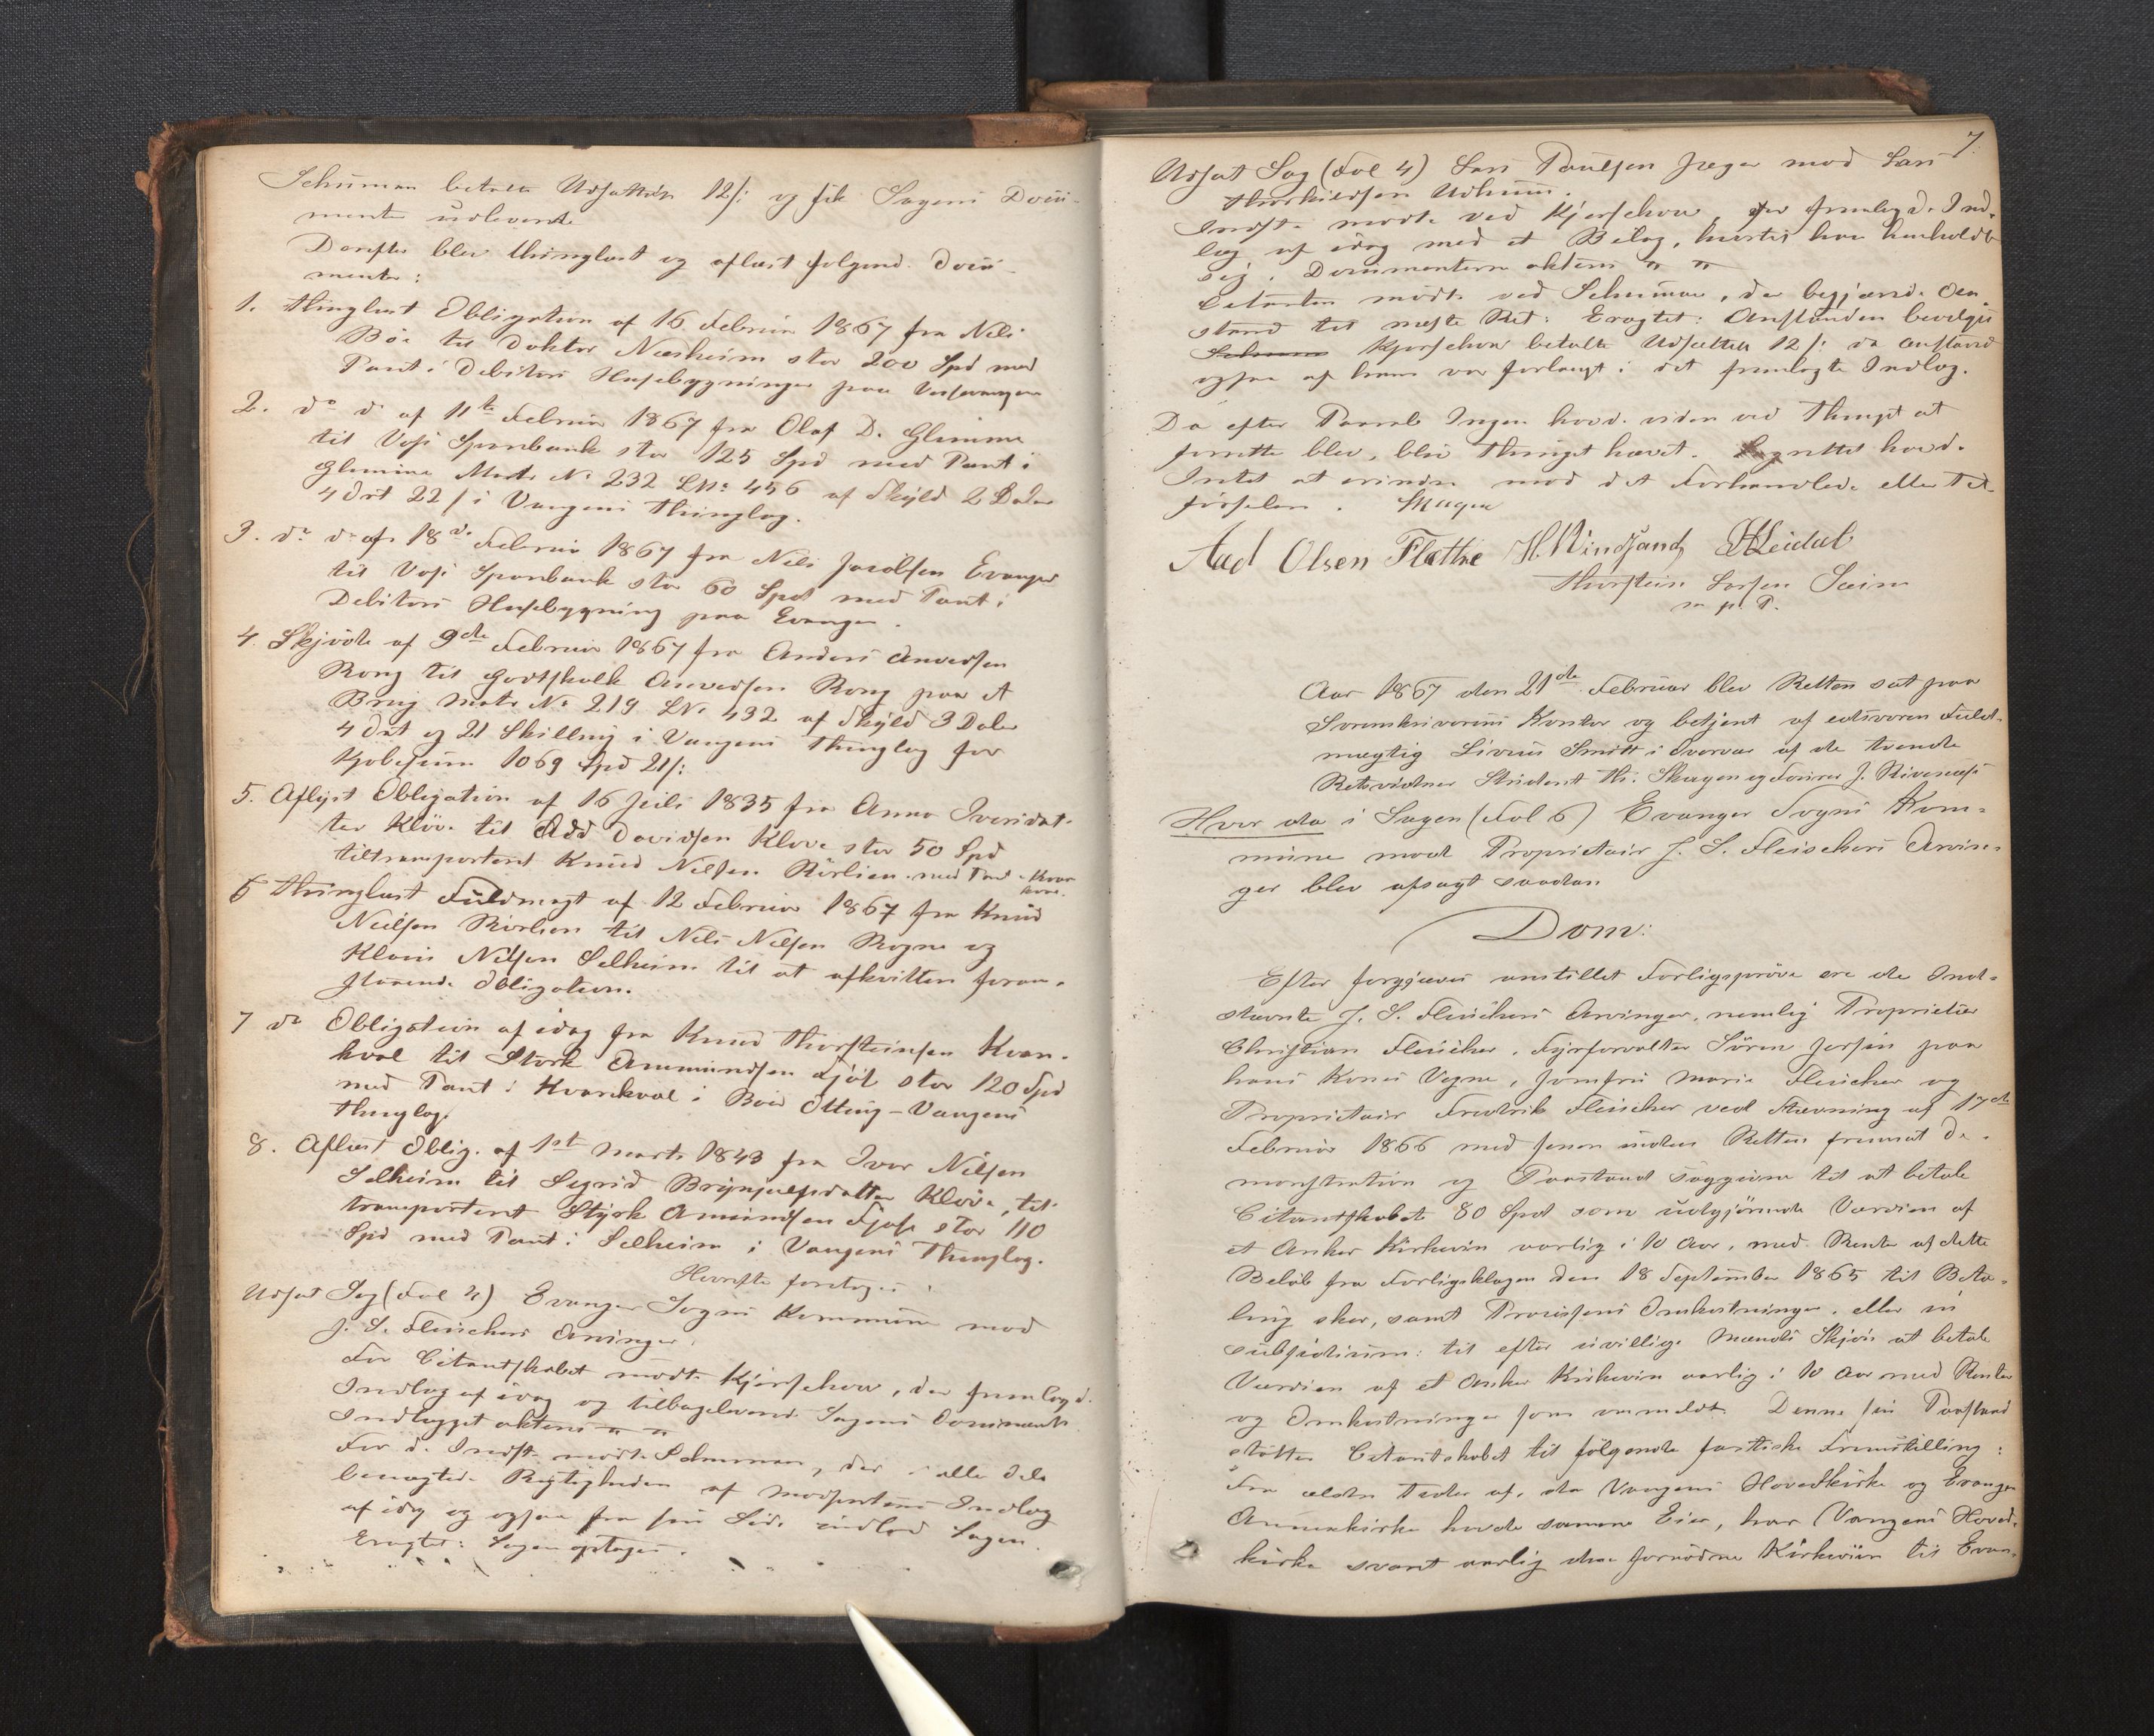 Schuman betalte Udsættelse 12 /: og fik Sagens Docu-
menter udleverede
Derefter blev thinglæst og aflæst følgende Docu-
menter:
1. Thinglæst Obligation af 16 Februar 1867 fra Nils
Bøe til Doktor Næsheim stor 200 Spd med
Pant i Debitors Husebygninger paa Vossevangen
2. do do af 11te Februar 1867 fra Olaf D. Glimme
til Voss Sparebank stor 125 Spd med Pant i
Glimme Matr No 232 LNo 456 af Skyld 2 Daler
4 Ort 22 / i Vangens Thinglag.
3. do do af 18de Februar 1867 fra Nils Jacobsen Evanger
til Voss Sparebank stor 60 Spd med Pant i
Debitors Husebygning paa Evanger.
4. Skjøde af 9de Februar 1867 fra Anders Anvedsen
Rong til Godtskalk Anvedsen Rong paa et
Brug Matr No 219 LNo 432 af Skyld 3 Daler
4 Ort og 21 Skilling i Vangens Thinglag for
Kjøbesum 1069 Spd 21 /:
5. Aflyst Obligation af 16 Juli 1835 fra Anna Iversdat-
ter Kløve til Odd Davidsen Kløve stor 50 Spd
tiltransporteret Knud Nilsen Rørlien med Pant i
6 Thinglæst Fuldmagt af 12 Februar 1867 fra Knud
Nielsen Rørlien til Nils Nilsen Rogne og
Nilsen Selheim til at afkvittere foran-
staaende Obligation.
7 do Obligation af idag fra Knud Thorsteinsen Kvar-
hval til Størk Ammundsen Fjøse stor 120 Spd
med Pant i Kvarekval i Bøes Otting - Vangens
Thinglag.
8. Aflæst Oblig. af 1st Marts 1843 fra Iver Nilsen
Selheim til Sigrid Brynjulfsdatter Kløve, til-
transporteret Styrk Amundsen Fjøse stor 110
Spd med Pant i Selheim i Vangens Thinglag.
Herefter foretoges:
Udsat Sag (Fol 4) Evanger Sogns Kommune mod
J. S. Fleischers Arvinger.
For Citantskabet mødte Kjerschow, der fremlagde
Indlæg af idag og tilbageleverede Sagens Documenter
Indlægget akteres " "
For de Indst. mødte Schuman, der i alle Dele
benægtede Rigtigheden af Modpartens Indlæg
af idag og ogsaa fra sin Side indlod Sagen.
Eragtet: Sagen optages.
7.
Udsat Sag (Fol 4) Lars Paulsen Jæger mod Lars
Thorkildsen
Indst. mødte ved Kjerschow, der fremlagde Ind-
læg af idag med et Bilag, hvortil han henholdt
sig. Documenterne akteres " "
Citanten mødte ved Schuman, der begjærede An-
stand til næste Ret: Eragtet: Anstanden bevilges
Kjerschow betalte Udsættelse 12 /: da Anstand
ogsaa af ham var forlangt i det fremlagte Indlæg.
Da efter Paaraab Ingen havde videre ved Thinget at
forrette blev, blev Thinget hævet. Lagrettet havde
Intet at erindre mod det Forhandlede eller Til-
førselen. Skagen
Aad Olsen Fløthe H. Windsand HLeidal
Thorstein Larsen Sæim
m. p. P.
Aar 1867 den 21de Februar blev Retten sat paa
Sorenskriverens Kontor og betjent af edsvoren Fuld-
mægtig Livius Smitt i Overvær af de tvende
Retsvidner Student Th: Skagen og Fourer J. Rivenæs
Hvor da i Sagen (Fol 6) Evanger Sogns Kom-
mune mod Proprietair J. S. Fleischers Arvin-
ger blev afsagt saadan
Dom:
Efter forgjæves anstillet Forligsprøve ere de Ind-
stævnte J. S. Fleischers Arvinger, nemlig Proprietær
Christian Fleischer, Fyrforvalter Søren Jersin paa
hans Kones Vegne, Jomfru Marie Fleischer og
Proprietair Fredrik Fleischer ved Stævning af 17de
Februar 1866 med senere inden Retten fremsat De-
monstration og Paastand saggivne til at betale
Citantskabet 80 Spd som udgjørende Værdien af
et Anker Kirkevin aarlig i 10 Aar, med Rente af dette
Beløb fra Forligsklagen den 18 September 1865 til Beta-
ling sker, samt Processens Omkostninger, eller in
subsidium: til efter uvillige Mænds Skjøn at betale
Værdien af et Anker Kirkevin aarlig i 10 Aar med Renter
og Omkostninger som anmeldt. Denne sin Paastand
støtter Citantskabet til følgende factiske Fremstilling:
Fra ældre Tider af, da Vangens Hovedkirke og Evanger
Annexkirke havde samme Eier, har Vangens Hoved-
kirke svaret aarlig den fornødne Kirkeviin til Evan-